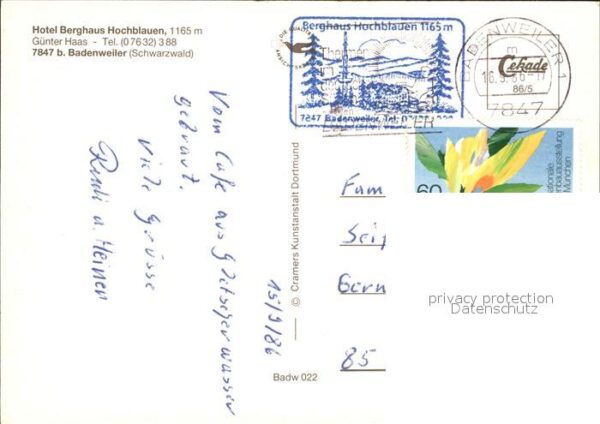 Hotel Berghaus Hochblauen, 1165 m
Günter Haas - Tel. (0 76 32) 3 88
7847 b. Badenweiler (Schwarzwald)
Berghaus Hochblauen 1165 m
7847 Badenweiler, Tel. 07632/388
BADENWEILER 1
16.9.86-17
7847
m
Cekade
86/5
60
Vom Cafe aus Gletscherwasser
gebraut.
Viele Grüsse
Rudi u. Heiner
15/9/86
© Cramers Kunstanstalt Dortmund
Badw 022
Fam
Sei
Gern
85
privacy protection
Datenschutz